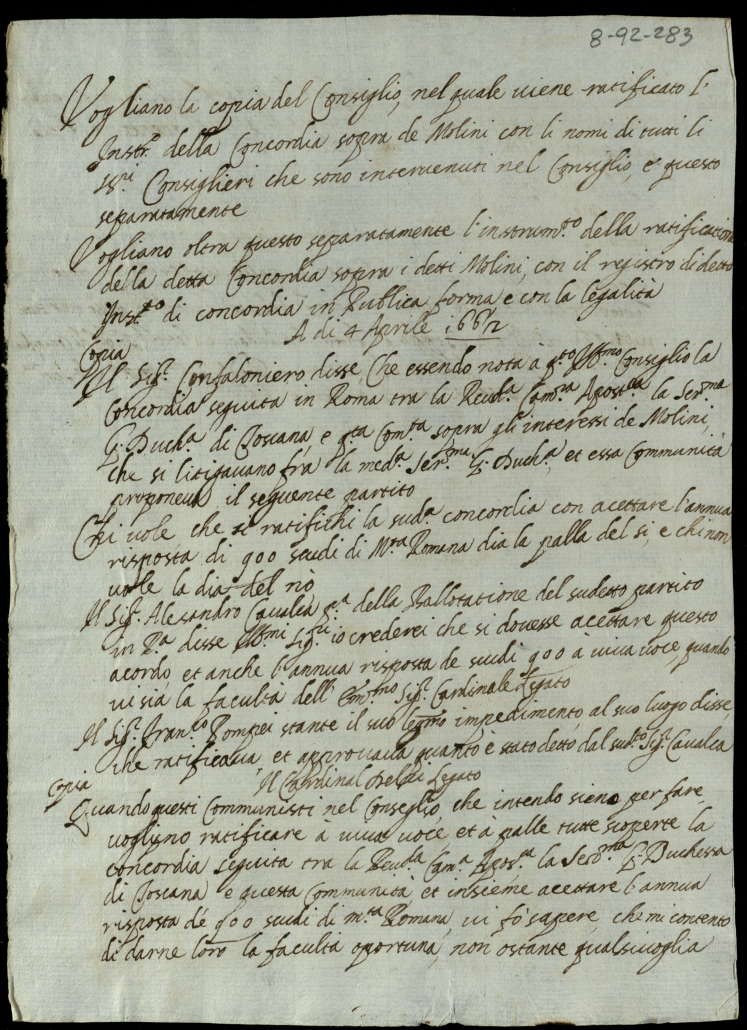 8-92-283
Vogliano la copia del Consiglio, nel quale viene ratificato l'
Instr.º della Concordia sopra de Molini con li nomi di tutti li
SS.ri Consiglieri che sono intervenuti nel Consiglio, e questo
separatamente
Vogliano oltra questo separatamente l'instrum.to della ratificatione
della detta Concordia sopra i detti Molini, con il registro di detto
Inst.to di concordia in Publica forma e con la legalità
A di 4 Aprile
Copia
Il Sig.r Confaloniero disse, Che essendo nota à q.to Ill.mo Consiglio la
Concordia seguita in Roma tra la Reu.da Cam.ra Apost.lica la Ser.ma
G. Duch.a di Toscana e q.ta Com.tà sopra gli interessi de Molini,
che si litigavano fra la med.a Ser.ma G. Duch.a, et essa Communità
proponeva il seguente partito
Chi vole che si ratifichi la sud.a concordia con acettare l'annua
risposta di 900 scudi di M.ta Romana dia la palla del si, e chi non
vole la dia del nò
Il Sig.r Alesandro Cavalca p.a della Ballotatione del sudetto partito
in P.a disse Ill.mi Sig.ri io crederei che si dovesse acettare questo
acordo et anche l'annua risposta de scudi 900 à viva voce, quando
vi sia la facultà dell' Em.mo Sig.r Cardinale Legato
Il Sig.r Fran.co Pompei stante il suo legmo impedimento, al suo luogo disse,
che ratificava, et approvava quanto è stato detto dal sud.to Sig.r Cavalca
Il Cardinal Legato
Copia
Quando questi Communisti nel Conseglio, che intendo sieno per fare
voglino ratificare à viva voce et à palle tutte scoperte la
concordia seguita tra la Reu.da Cam.a Apos.ca la Ser.ma G. Duchessa
di Toscana e questa Communità, et insieme acettare l'annua
risposta dè 900 scudi di m.ta Romana, vi fò sapere, che mi contento
di darne loro la facultà oportuna, non ostante qualsivoglia